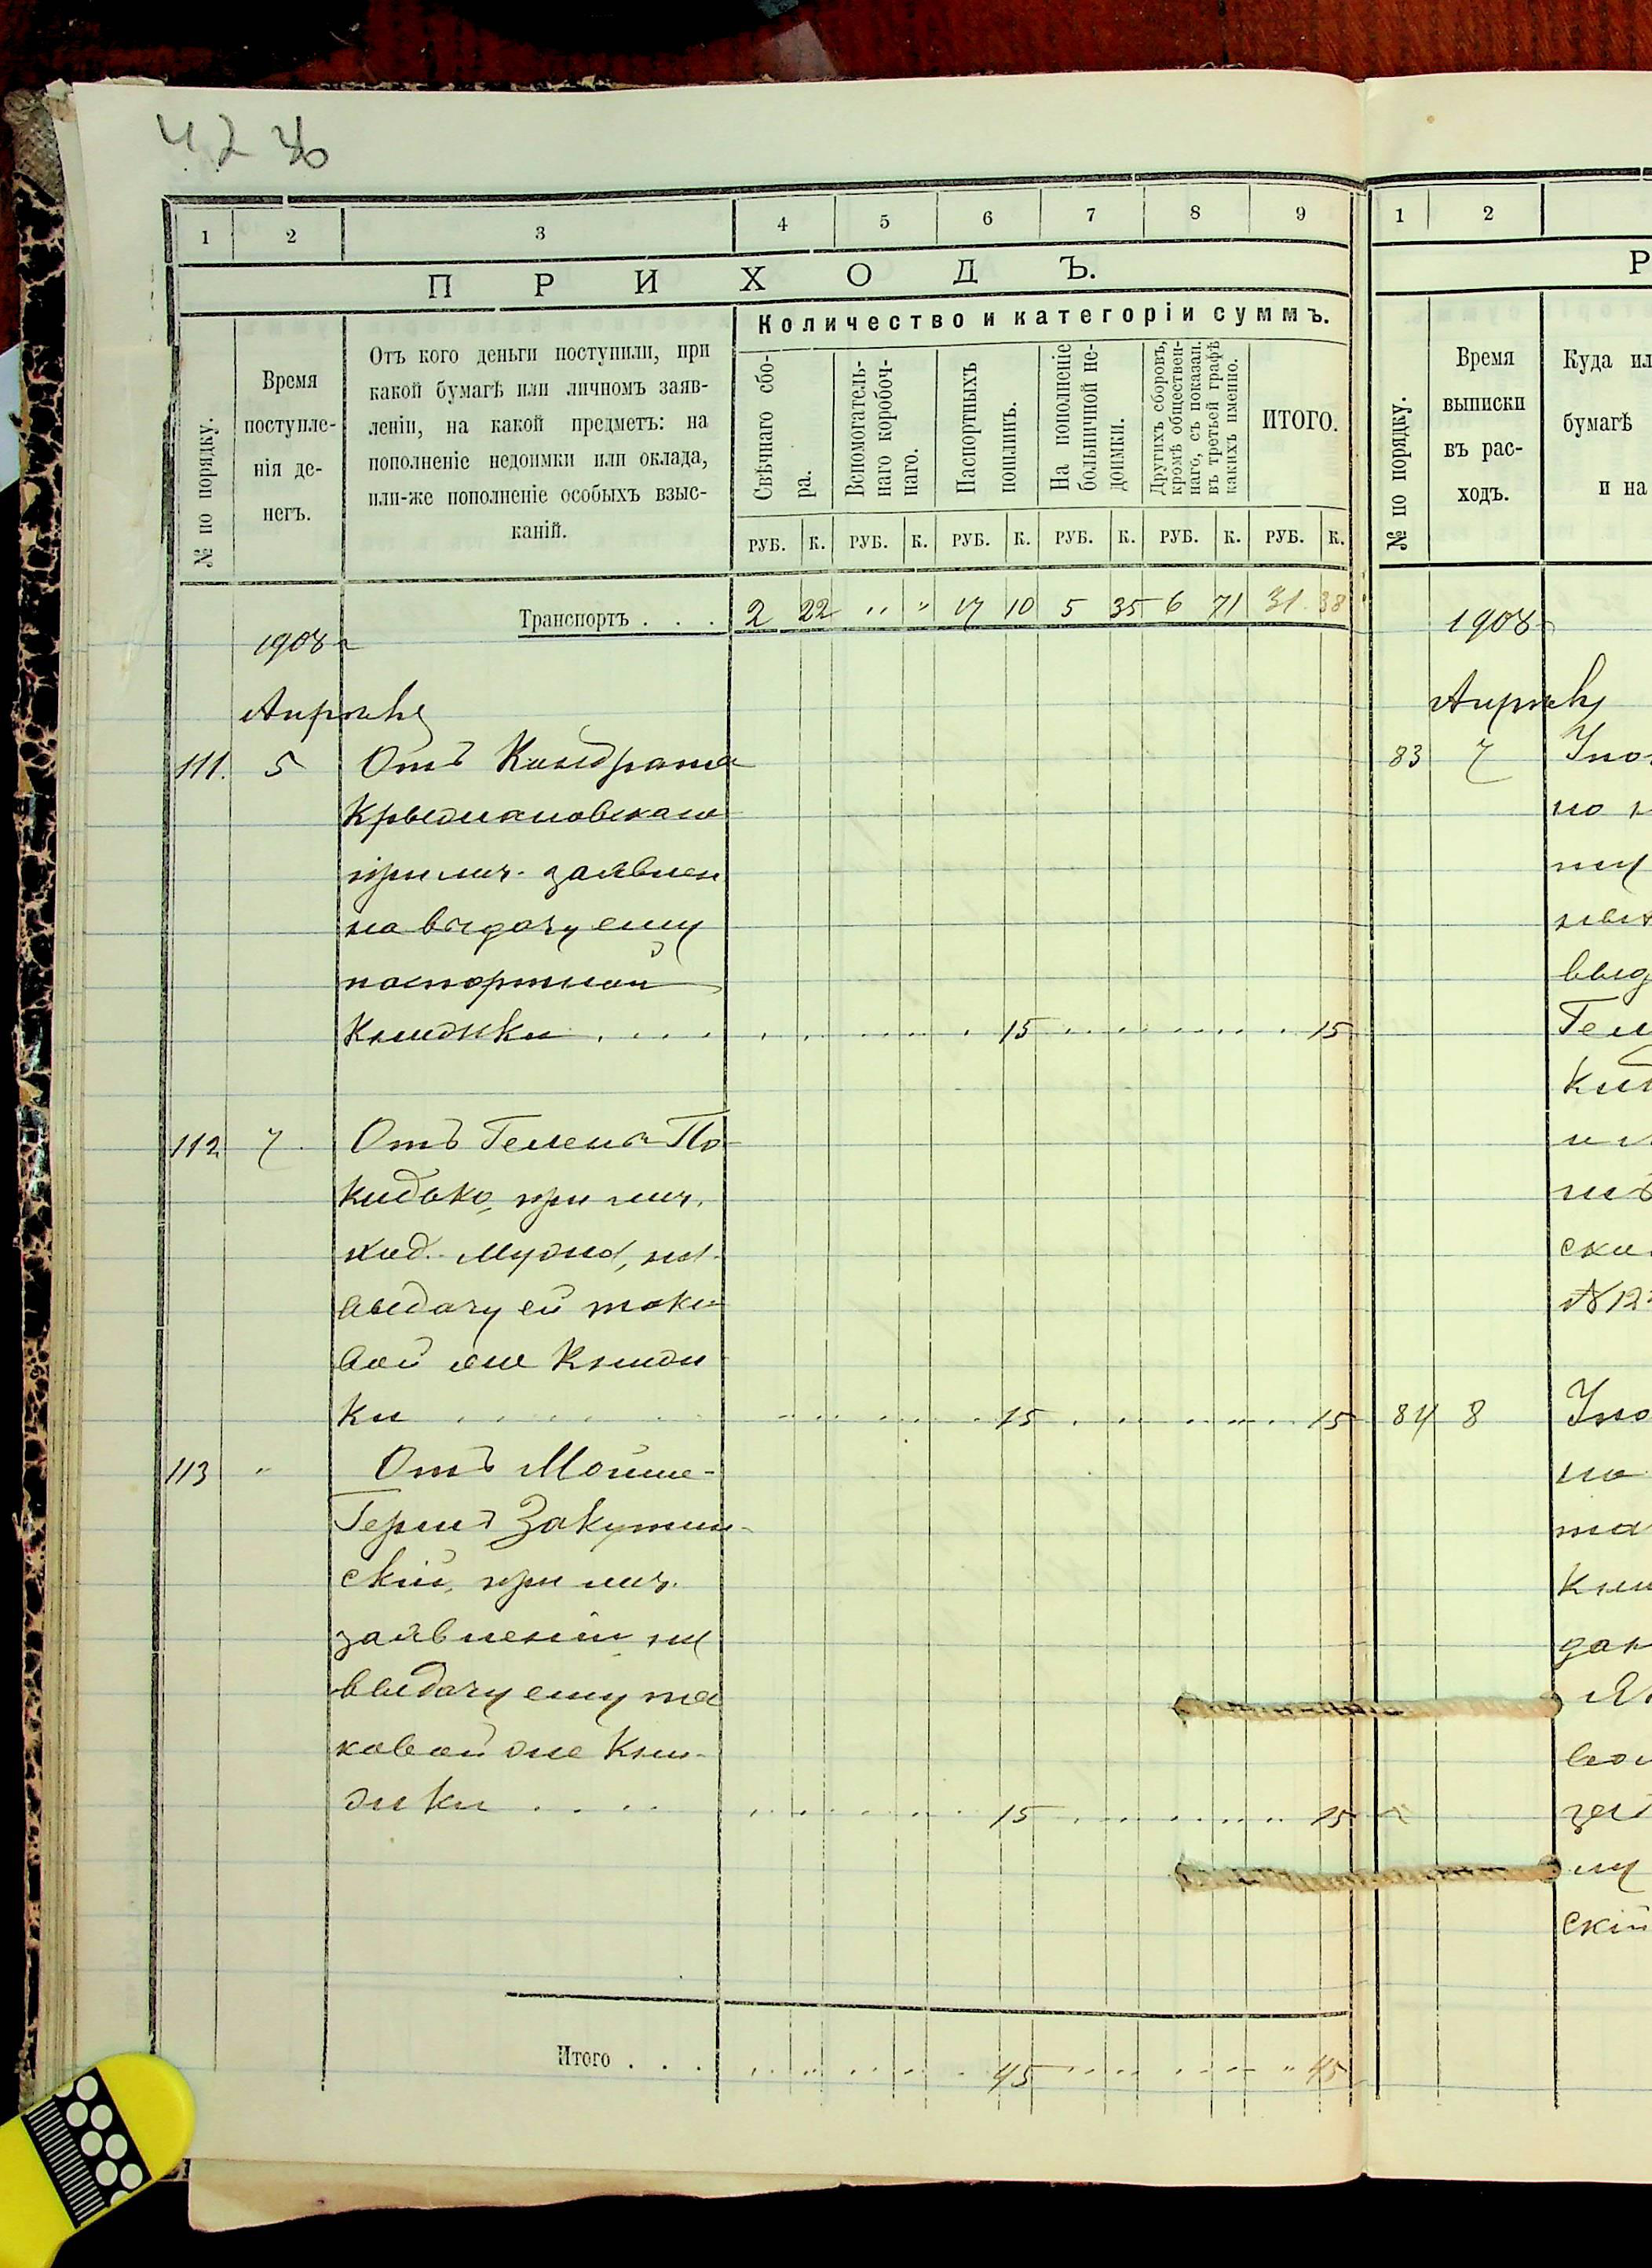 1 2 3 4 5 6 7 8 9
ПРИХОДЪ.
Количество и категоріи суммъ.
№ по порядку.
Время
поступле-
нія де-
негъ.
Отъ кого деньги поступили, при
какой бумагѣ или личномъ заяв-
леніи, на какой предметъ: на
пополненіе недоимки или оклада,
или-же пополненіе особыхъ взыс-
каній.
Свѣчнаго сбо-
ра.
Вспомогатель-
наго коробоч-
наго.
Паспортныхъ
пошлинъ.
На пополненіе
больничной не-
доимки.
Другихъ сборовъ,
кромѣ обществен-
наго, съ показан.
въ третьей графѣ
какихъ именно.
ИТОГО.
РУБ. К. РУБ. К. РУБ. К. РУБ. К. РУБ. К. РУБ. К.
Транспортъ . . . 2 22 " " 17 10 5 35 6 71 31 38
1908 г
Апрѣль
111. 5 Отъ Кондрата
при лич. заявлен
на выдачу ему
паспортной
книжки . . . . 15 15
112 7 Отъ
при лич.
ход. мужа, на
выдачу ей тако
вой же книж
ки 15 15
113 " Отъ Мойше-
Герша Закутин-
скій, при лич.
заявленіи на
выдачу ему та
ковой же кни-
жки . . . . 15 15
Итого . . . 45 " 45
1 2
Р
№ по порядку.
Время
выписки
въ рас-
ходъ.
Куда ил
бумагѣ
и на
1908
Апрѣль
83 7
по
выд
ски
№ 12
84 8
на
та
Кни
дан
вой
скій